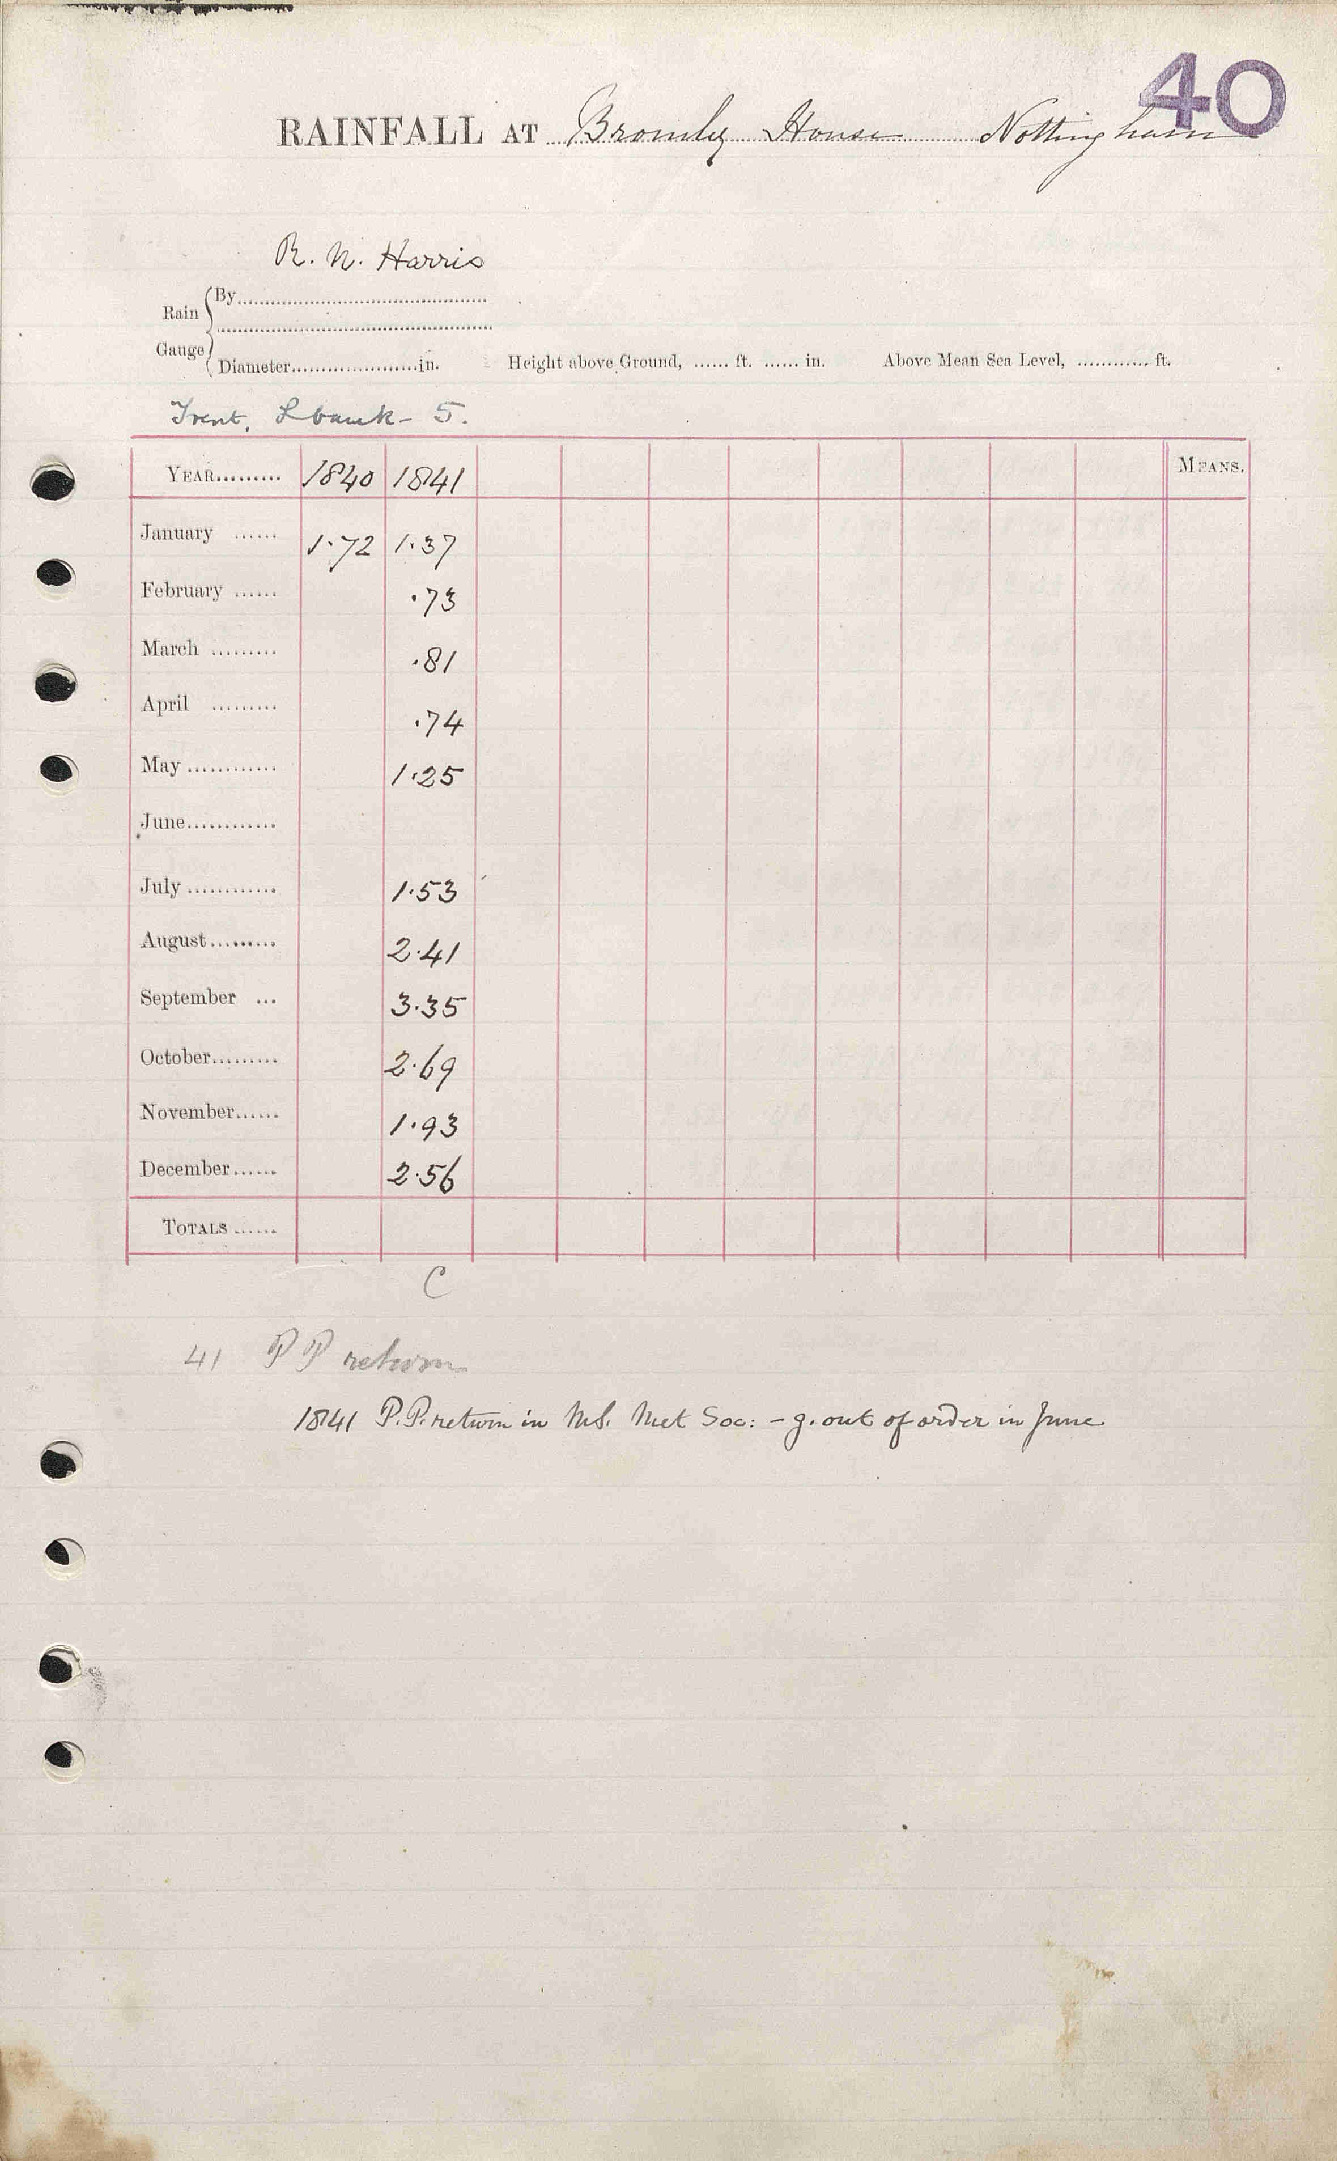 40
RAINFALL AT Bromley House Nottingham
R. N. Harris
Rain Gauge { By
Diameter in. Height above Ground, ...... ft. ...... in. Above Mean Sea Level, ............ ft.
Trent, L bank - 5.
YEAR......... 1840 1841 MEANS.
January ...... 1.72 1.37
February ...... .73
March ......... .81
April ......... .74
May ............ 1.25
June............
July ............ 1.53
August......... 2.41
September ... 3.35
October......... 2.69
November...... 1.93
December...... 2.56
TOTALS ......
C
41 PP return
1841 P.P. return in MS. Met Soc: - g. out of order in June